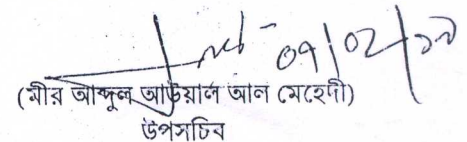 ০৭/০২/১৯
(মীর আব্দুল আউয়াল আল মেহেদী)
উপসচিব